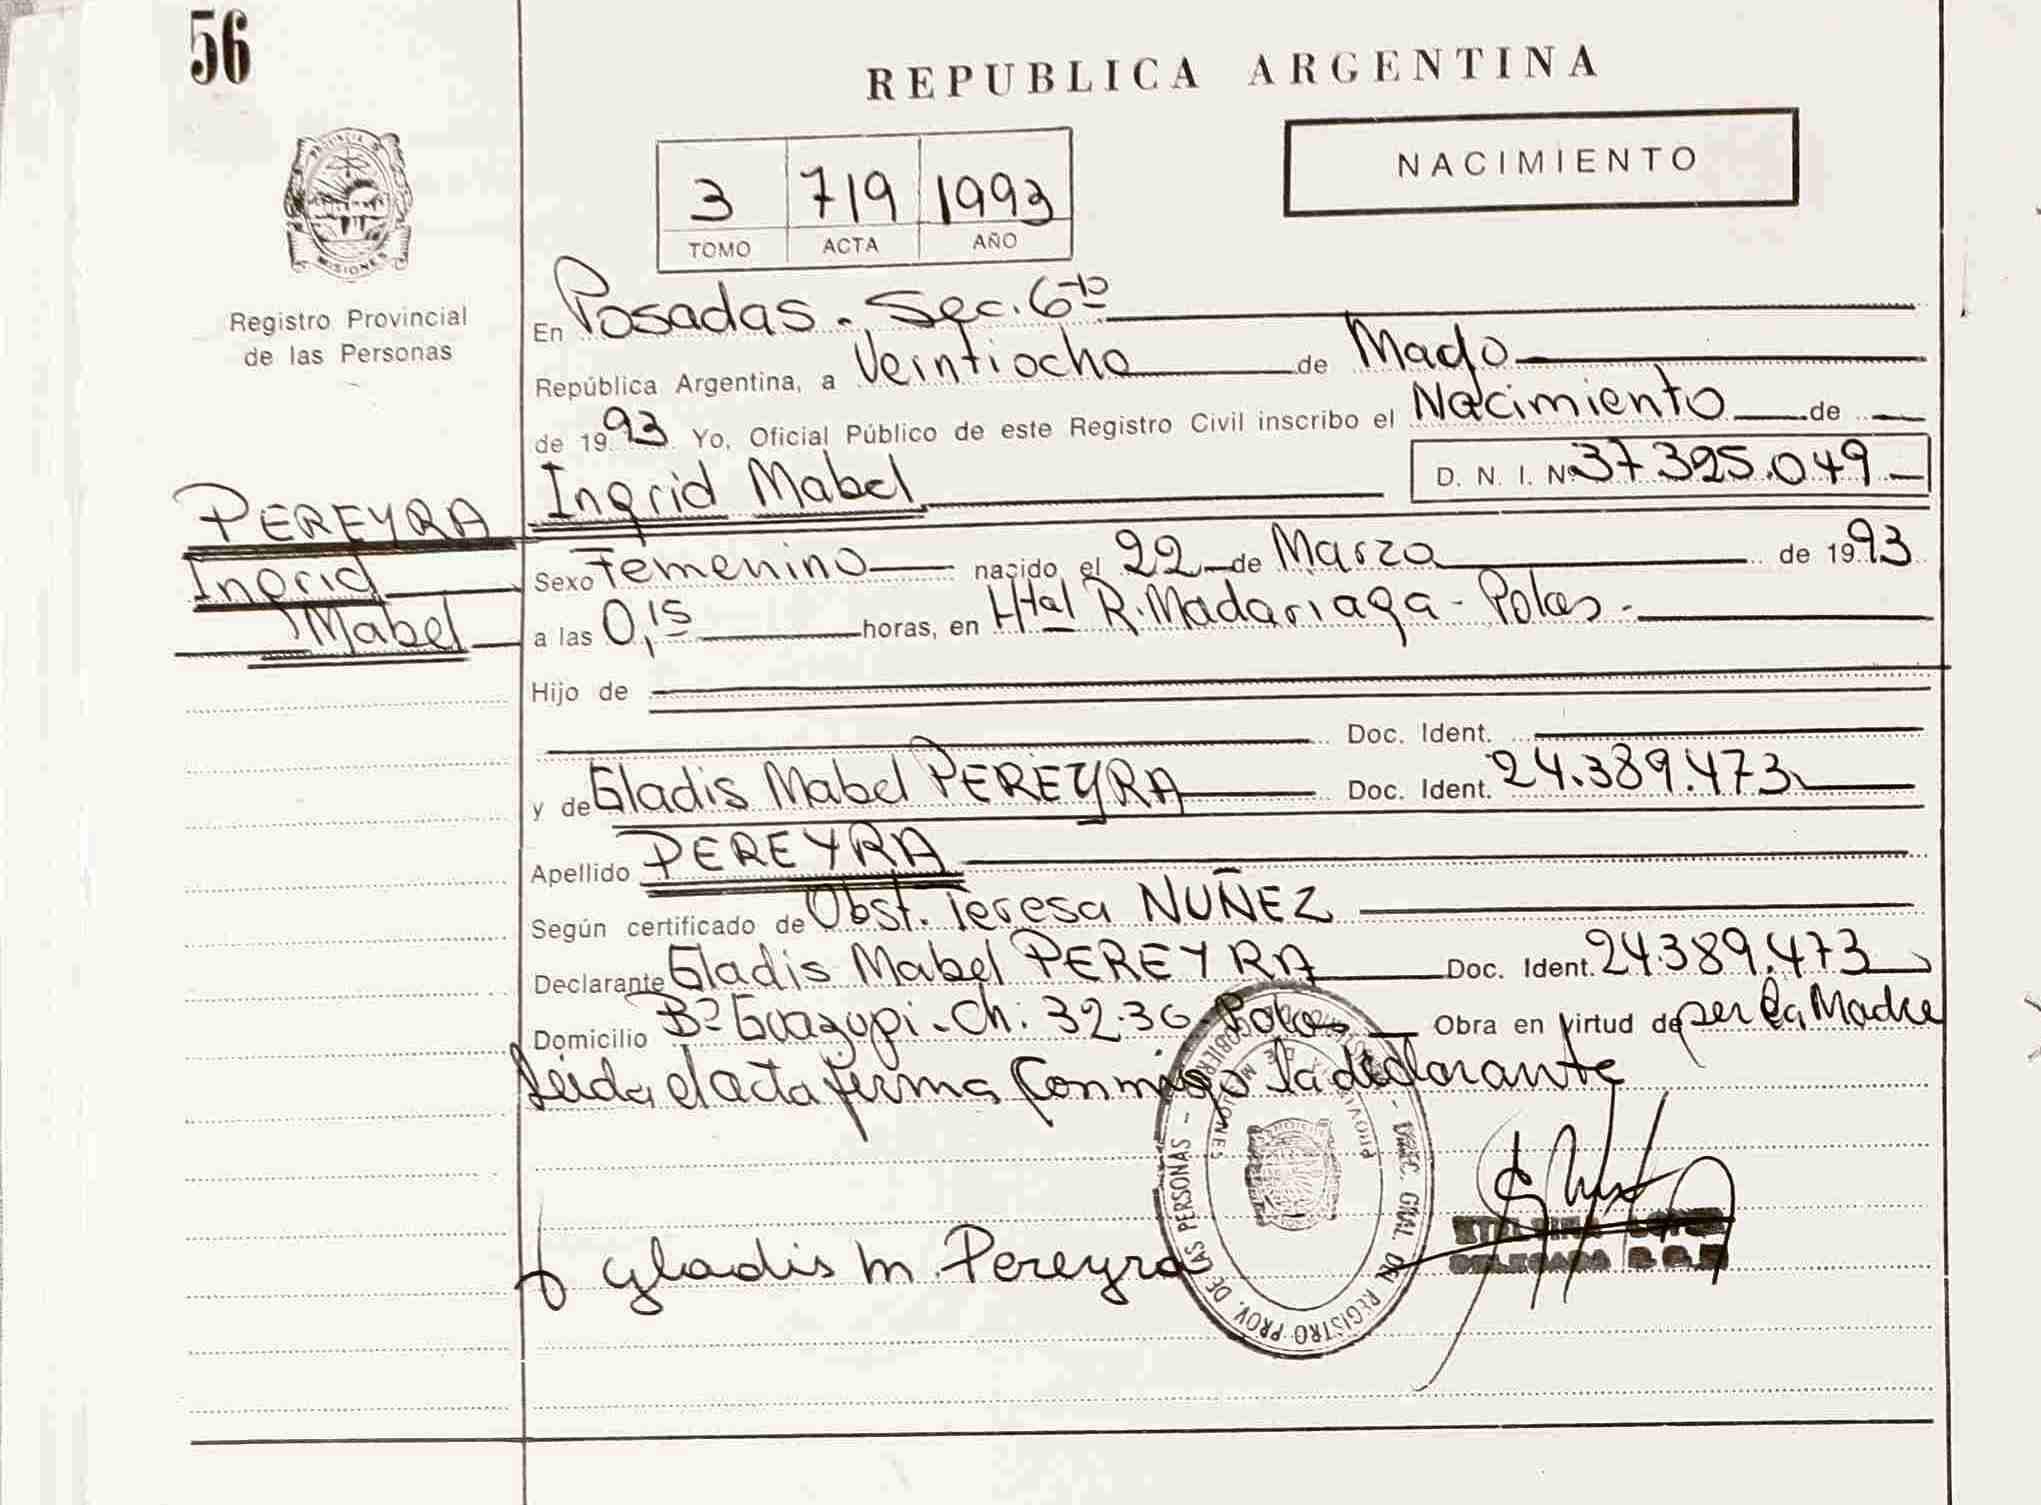 56
REPUBLICA ARGENTINA
NACIMIENTO
3 719 1993
TOMO ACTA AÑO
PROVINCIA DE
MISIONES
Registro Provincial
de las Personas
En Posadas - Sec. 6ta
República Argentina, a Veintiocho de Mayo
de 1993 Yo, Oficial Público de este Registro Civil inscribo el Nacimiento de
Ingrid Mabel D. N. I. Nº 37.325.049
PEREYRA
Ingrid
Mabel
Sexo Femenino nacido el 22 de Marzo de 1993
a las 0,15 horas, en Htal R. Madariaga - Pdas.
Hijo de
Doc. Ident.
y de Gladis Mabel PEREYRA Doc. Ident. 24.389.473
Apellido PEREYRA
Según certificado de Obst. Teresa NUÑEZ
Declarante Gladis Mabel PEREYRA Doc. Ident. 24.389.473
Domicilio Bº Guazupi - Ch: 32.36 Pdas Obra en virtud de ser la Madre
Leida el acta firma conmigo la declarante
DIREC. GRAL DEL REGISTRO PROV. DE LAS PERSONAS -
PROVINCIA DE MISIONES
Gladis M. Pereyra
DELEGADA